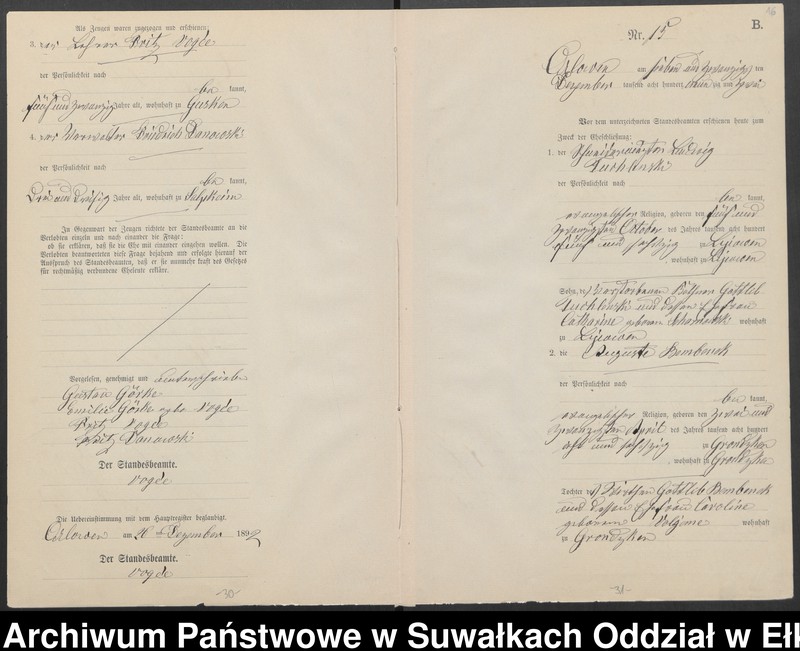 Als Zeugen waren zugezogen und erschienen:
3. der Lehrer Fritz Vogée
der Persönlichkeit nach
be kannt,
fünf und zwanzig Jahre alt, wohnhaft zu Gusken
4. der Verwalter Friedrich Danowski
der Persönlichkeit nach
be kannt,
Drei und dreißig Jahre alt, wohnhaft zu Sulzheim
In Gegenwart der Zeugen richtete der Standesbeamte an die
Verlobten einzeln und nach einander die Frage:
ob sie erklären, daß sie die Ehe mit einander eingehen wollen. Die
Verlobten beantworteten diese Frage bejahend und erfolgte hierauf der
Ausspruch des Standesbeamten, daß er sie nunmehr kraft des Gesetzes
für rechtmäßig verbundene Eheleute erkläre.
Vorgelesen, genehmigt und unterschrieben
Gustav Görke
Emilie Görke geb. Vogée
Fritz Vogée
Fritz Danowski
Der Standesbeamte.
Vogée
Die Uebereinstimmung mit dem Hauptregister beglaubigt.
Czarlowen am 20 ten Dezember 1892
Der Standesbeamte.
Vogée
-30-
16
B.
Nr. 15
am sieben und zwanzigsten
Dezember tausend acht hundert neun zig und zwei
Vor dem unterzeichneten Standesbeamten erschienen heute zum
Zweck der Eheschließung:
1. der Ludwig
Suchlowski
der Persönlichkeit nach
be kannt,
evangelischer Religion, geboren den fünf und
zwanzigsten October des Jahres tausend acht hundert
fünf und sechszig zu
, wohnhaft zu
Sohn des verstorbenen Gottlieb
Suchlowski und dessen Ehefrau
Catharine geborene wohnhaft
zu
2. die Auguste Bembenek
der Persönlichkeit nach
be kannt,
evangelischer Religion, geboren den zwei und
zwanzigsten April des Jahres tausend acht hundert
acht und sechszig zu Grondzken
, wohnhaft zu Grondzken
Tochter des Wirthen Gottlieb Bembenek
und dessen Ehefrau Caroline
geborene wohnhaft
zu Grondzken
-31-
Archiwum Państwowe w Suwałkach Oddział w Ełk